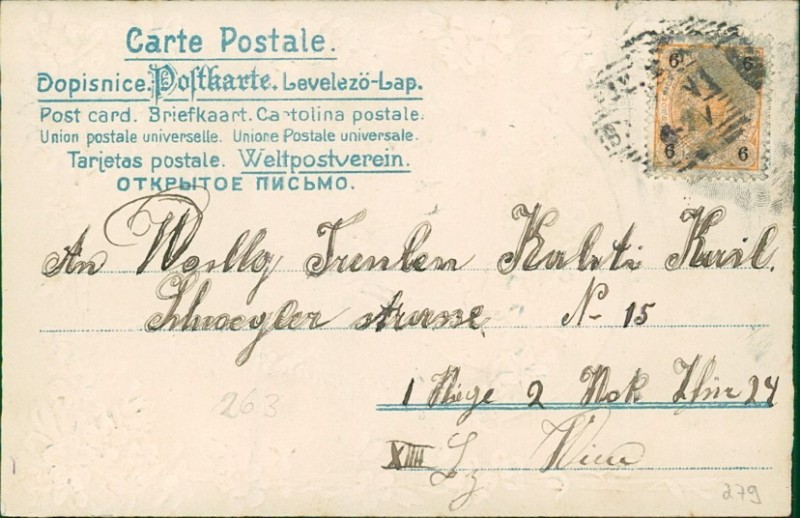 Carte Postale.
Dopisnice. Postkarte. Levelező-Lap.
Post card. Briefkaart. Cartolina postale.
Union postale universelle. Unione Postale universale.
Tarjetas postale. Weltpostverein.
ОТКРЫТОЕ ПИСЬМО.
6 6
6 6
An Wollg Trenlen Kaloti Karil.
strasse N- 15
1 Stiege 2 Stok Thür 24
XIII Wien
263
279